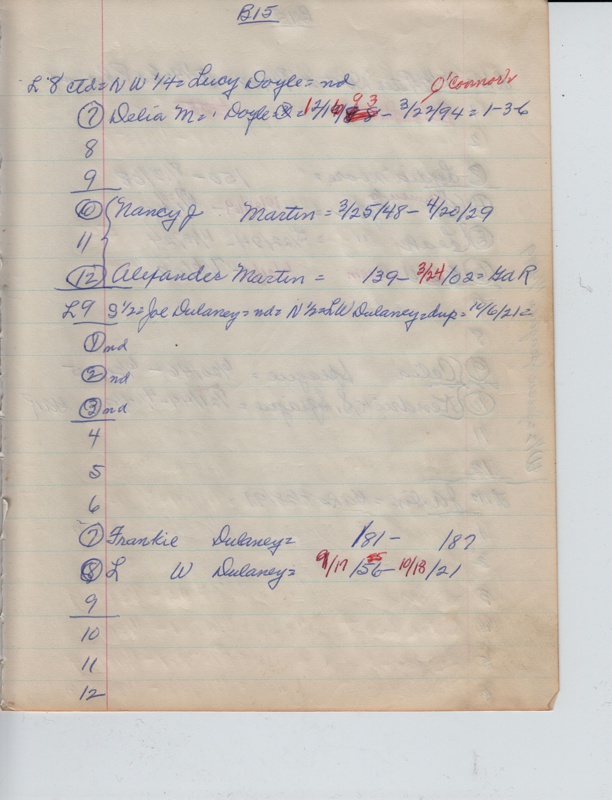 B15
L 8 ctd = N W 1/4 = Lucy Doyle = nd O'Connor's
7 Delia M = Doyle = 12/16/93 - 3/22/94 = 1-3-6
8
9
10 Nancy J Martin = 3/25/48 - 4/20/29
11
12 Alexander Martin = /39 - 3/24/02 = GaR
L 9 S 1/2 = Joe Dulaney = nd = N 1/2 = LW Dulaney = dup = 10/6/21 =
1 nd
2 nd
3 nd
4
5
6
7 Frankie Dulaney = /81 - /87
8 L W Dulaney = 9/17 /56 - 10/18/21
9
10
11
12